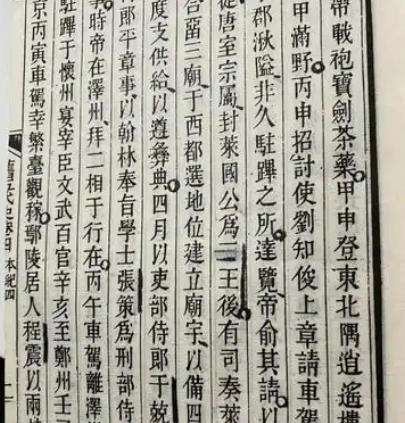 帶戰袍寶劍茶藥甲申登東北隅逍遙樓
甲滿野丙申招討使劉知俊上章請車駕
郡湫隘非久駐蹕之所達覽帝俞其請以
從唐室宗屬封萊國公爲三王後有司奏萊
合畱三廟于西都選地位建立廟宇以備四
度支供給以遵彝典四月以吏部侍郎于兢
侍郎平章事以翰林奉旨學士張策爲刑部侍
事時帝在澤州拜二相于行在丙午車駕離澤
駐蹕于懷州宴宰臣文武百官辛亥至鄭州壬
京丙寅車駕幸繁臺觀稼鄢陵居人程震以兩
舊五代史卷四 本紀四